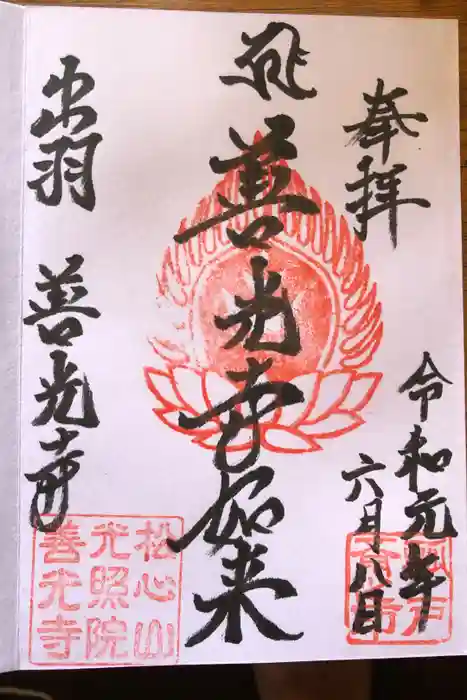 奉拝
令和元年
六月八日
善光寺如来
出羽
善光寺
松心山
光照院
善光寺